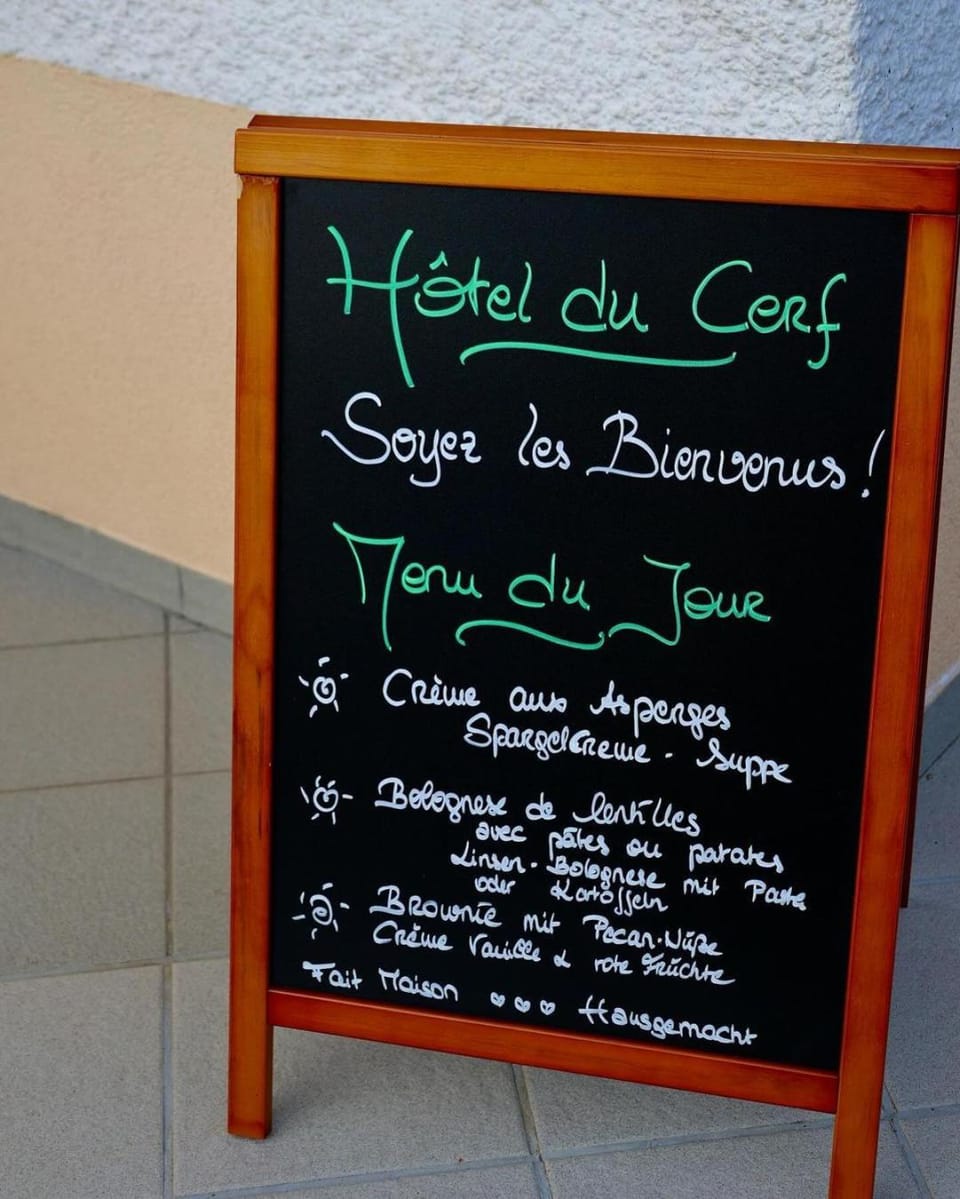 Hôtel du Cerf
Soyez les Bienvenus !
Menu du Jour
Crème aux Asperges
Spargelcreme - Suppe
Bolognese de lentilles
avec pâtes ou patates
Linsen-Bolognese mit Pasta
oder Kartoffeln
Brownie mit Pecan-Nüße
Crème Vanille & rote Früchte
Fait Maison ♥♥♥ Hausgemacht